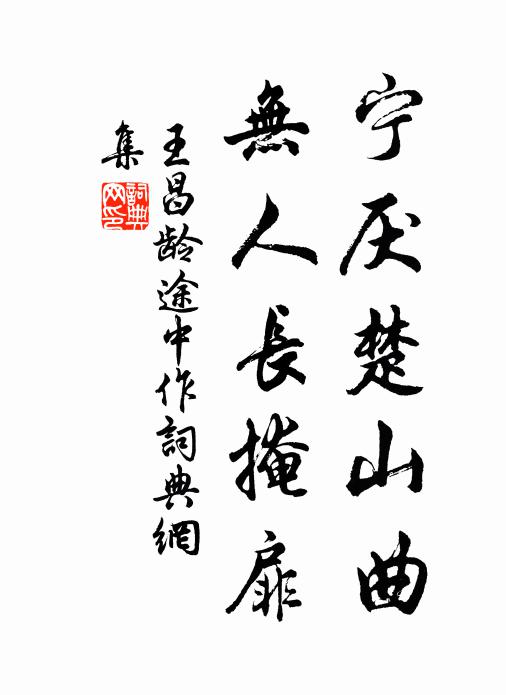 宁厌楚山曲
無人長掩扉
王昌龄途中作詞典網
集
詞典
网印